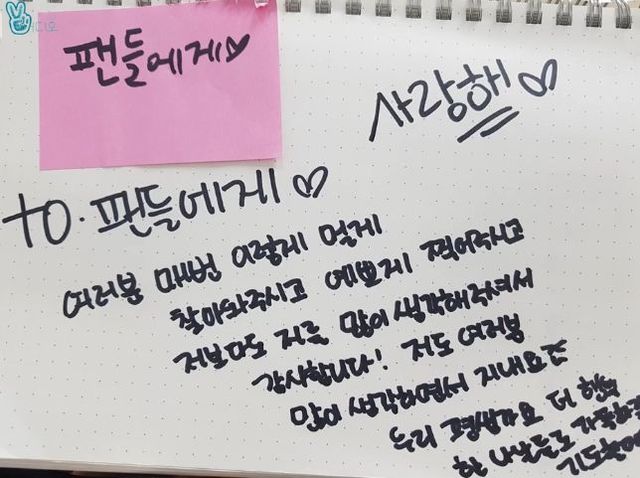 팬들에게♡
사랑해♡
to. 팬들에게♡
여러분 매번 이렇게 멀게
찾아와주시고 예쁘게 찍어주시고
저보다도 저를 많이 생각해주셔서
감사합니다! 저도 여러분
많이 생각하면서 지내요
우리 고생말고요 더 행복
한 나날들로 가득하길